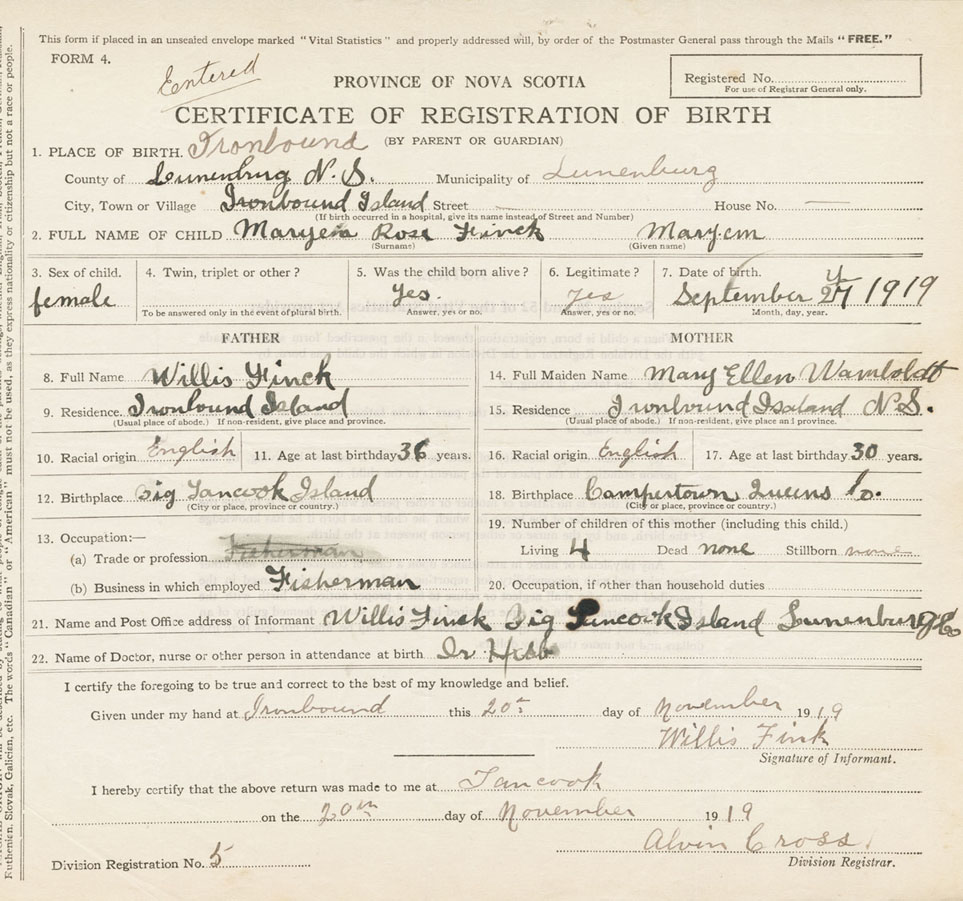 This form if placed in an unsealed envelope marked "Vital Statistics" and properly addressed will, by order of the Postmaster General pass through the Mails "FREE."
FORM 4.
Entered
PROVINCE OF NOVA SCOTIA
Registered No.
For use of Registrar General only.
CERTIFICATE OF REGISTRATION OF BIRTH
(BY PARENT OR GUARDIAN)
1. PLACE OF BIRTH. Ironbound
County of Lunenburg N.S. Municipality of Lunenburg
City, Town or Village Ironbound Island Street — House No. —
(If birth occurred in a hospital, give its name instead of Street and Number)
2. FULL NAME OF CHILD Maryem Rose Finck Maryem
(Surname) (Given name)
3. Sex of child. 4. Twin, triplet or other? 5. Was the child born alive? 6. Legitimate? 7. Date of birth.
female Yes. yes September 27 1919
To be answered only in the event of plural birth. Answer, yes or no. Answer, yes or no. Month, day, year.
FATHER MOTHER
8. Full Name Willis Finck 14. Full Maiden Name Mary Ellen Wamboldt
9. Residence. Ironbound Island 15. Residence Ironbound Isaland N.S.
(Usual place of abode.) If non-resident, give place and province. (Usual place of abode.) If non-resident, give place and province.
10. Racial origin English 11. Age at last birthday 36 years. 16. Racial origin English 17. Age at last birthday 30 years.
12. Birthplace Big Tancook Island 18. Birthplace Campertown Queens Co.
(City or place, province or country.) (City or place, province or country.)
19. Number of children of this mother (including this child.)
13. Occupation:—
(a) Trade or profession Fisherman Living 4 Dead none Stillborn none
(b) Business in which employed Fisherman 20. Occupation, if other than household duties
21. Name and Post Office address of Informant Willis Finck Big Tancook Island Lunenburg Co
22. Name of Doctor, nurse or other person in attendance at birth Dr Hebb
I certify the foregoing to be true and correct to the best of my knowledge and belief.
Given under my hand at Ironbound this 20th day of November 1919
Willis Fink
Signature of Informant.
I hereby certify that the above return was made to me at Tancook
on the 20th day of November 1919
Alvin Cross.
Division Registration No. 5 Division Registrar.
Ruthenien, Slovak, Galician, etc. The words "Canadian" or "American" must not be used, as they express nationality or citizenship but not a race or people.